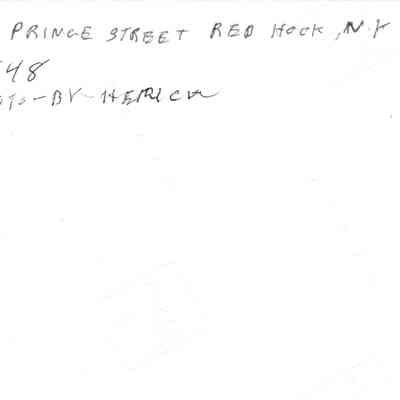 PRINCE STREET RED HOOK, N.Y
48
BY-HEINRICH